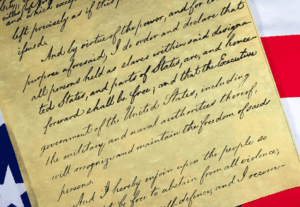 left precisely as if this
issued.
And by virtue of the power, and for
purpose aforesaid, I do order and declare that
all persons held as slaves within said designa-
ted States, and parts of States, are, and hence-
forward shall be free; and that the Executive
government of the United States, including
the military and naval authorities thereof,
will recognize and maintain the freedom of said
persons.
And I hereby enjoin upon the people so
be free to abstain from all violence,
defence; and I recom-